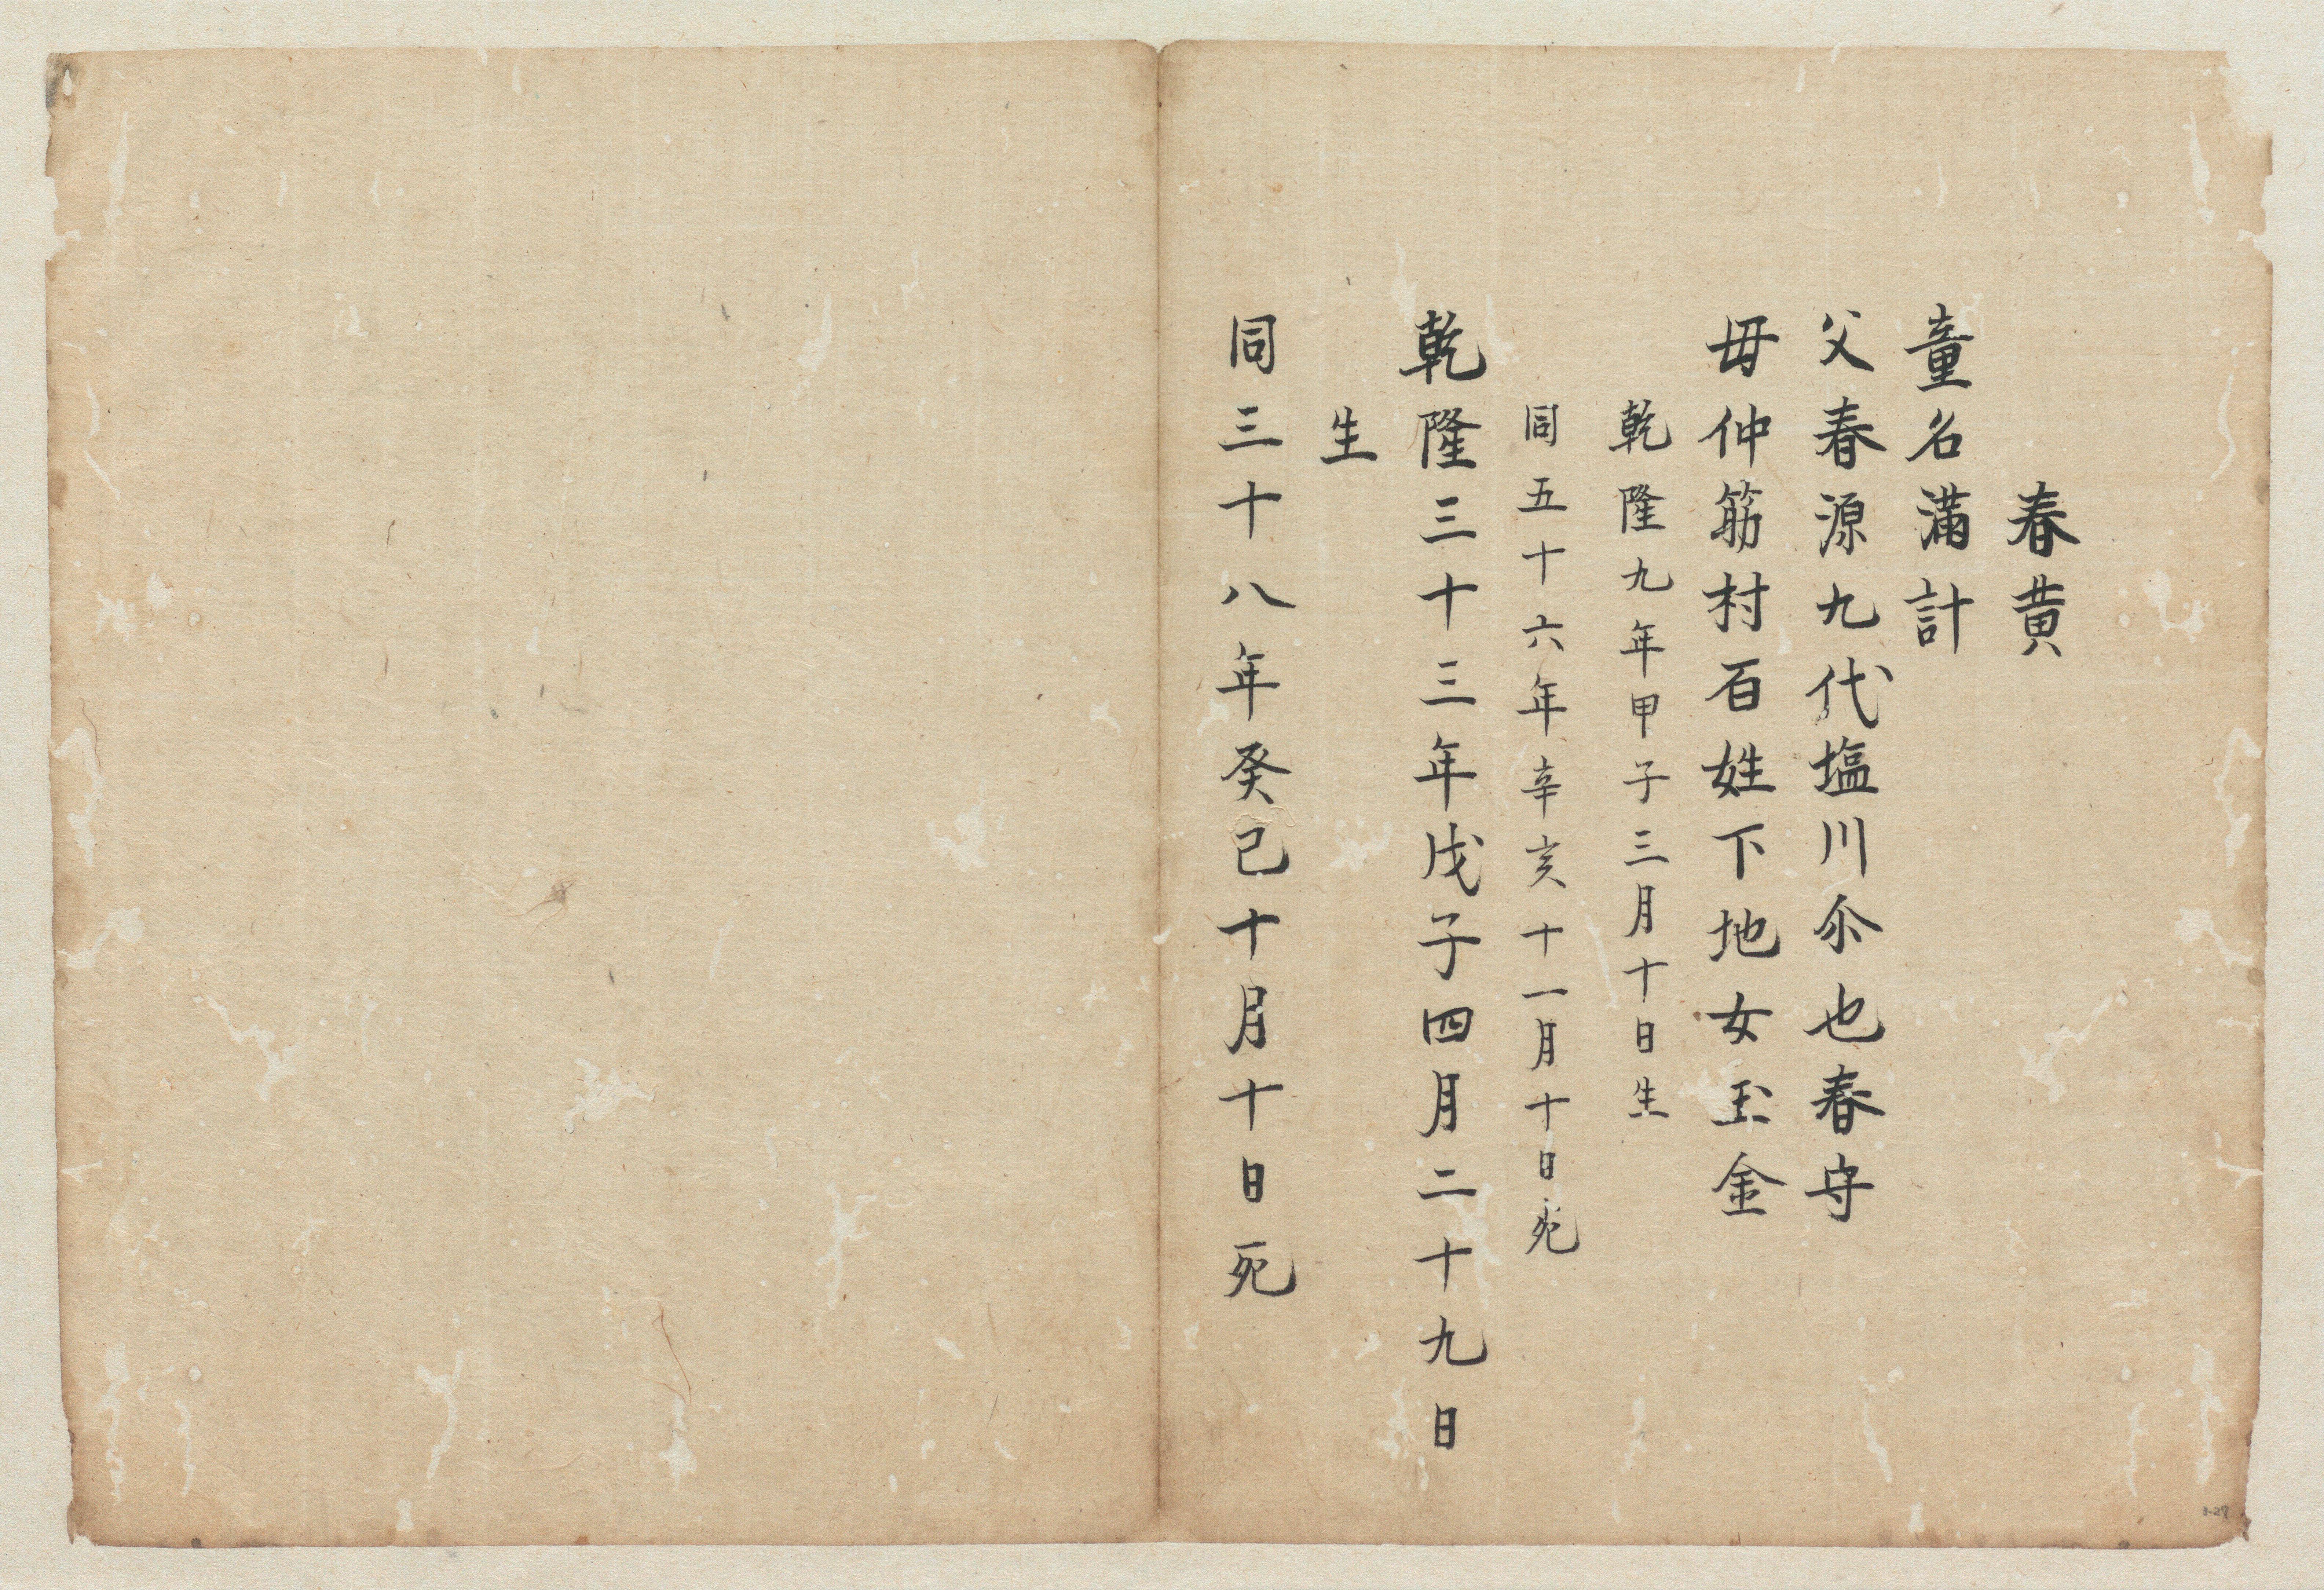 春黄
童名満計
父春源九代塩川尒也春守
毋仲筋村百姓下地女玉金
乾隆九年甲子三月十日生
同五十六年辛亥十一月十日死
乾隆三十三年戊子四月二十九日
生
同三十八年癸巳十月十日死